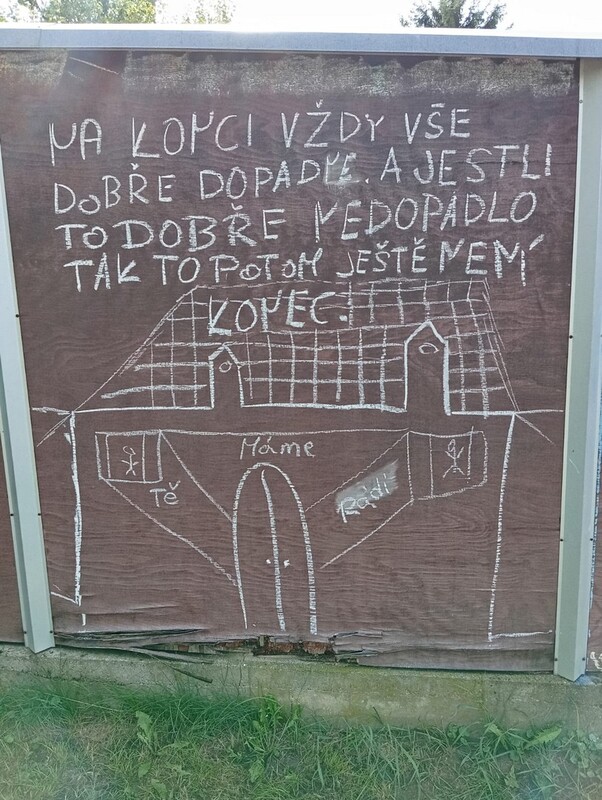 NA KONCI VŽDY VŠE
DOBŘE DOPADNE. A JESTLI
TO DOBŘE NEDOPADLO
TAK TO POTOM JEŠTĚ NENÍ
KONEC.
Máme
Tě
Rádi